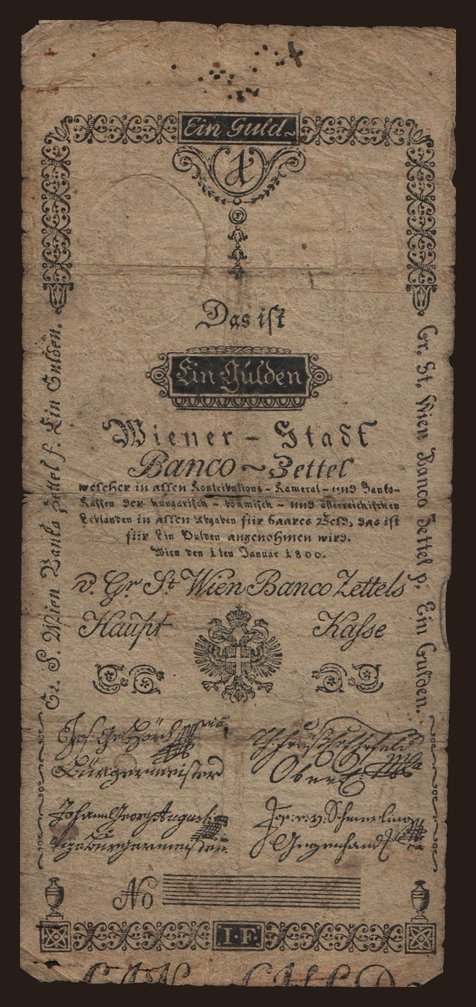 Ein Guld.
1
Das ist
Ein Gulden
Wiener - Stadt
Banco - Zettel
welcher in allen Kontributions- Kameral- und Banko-
Kassen der hungarisch- böhmisch- und österreichischen
Erblanden in allen Abgaben für baares Geld, das ist
für Ein Gulden angenohmen wird.
Wien den 1ten Januar 1800.
v. Gr St Wien Banco Zettels
Haupt Kasse
Gr. S. Wien Banko Zettel f. Ein Gulden.
Gr. St. Wien Banco Zettel p. Ein Gulden.
Jos. G. Hörl
Bürgermeister
Ober
Johann Georg Augusti
Vizebürgermeister
Jos. v. Schmerling
Gegenhand
No
I-F